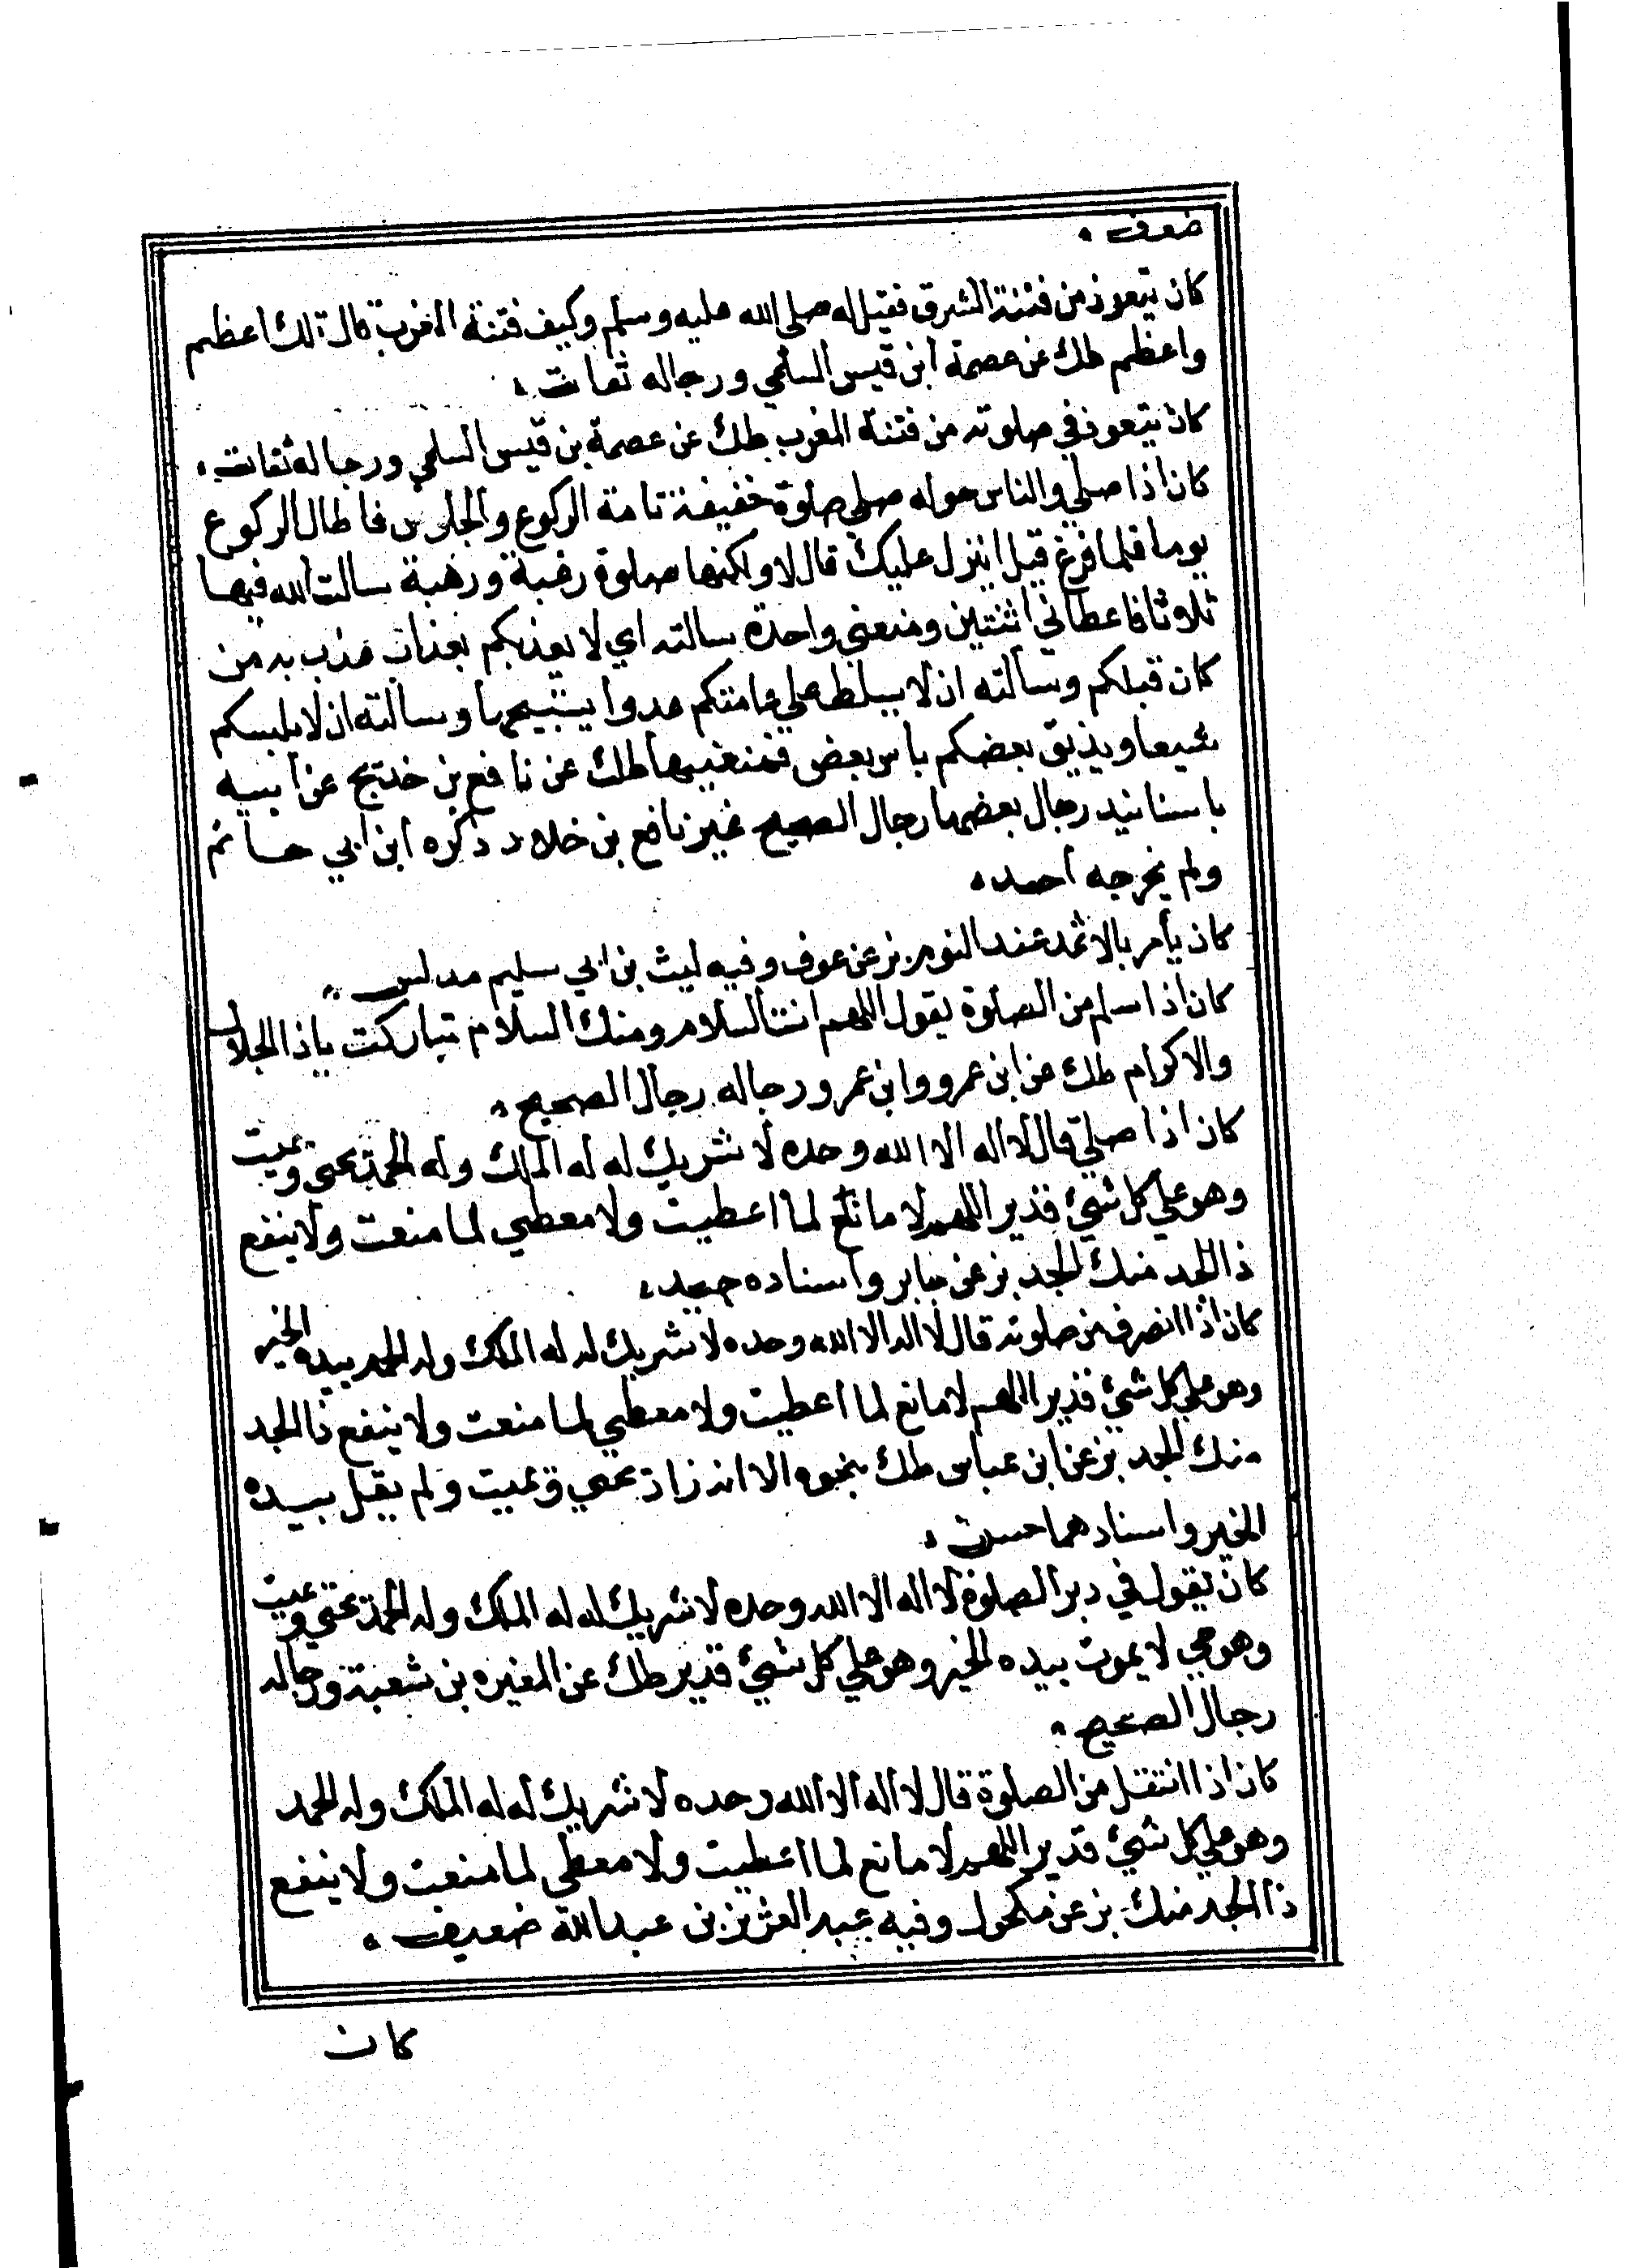 ضعف ،
كان يتعوذ من فتنة الشرق فقيل له صلى الله عليه وسلم وكيف فتنة المغرب قال تلك اعظم
واعظم طك عن عصمة ابن قيس السلمي ورجاله ثقات ،
كان يتعوذ في صلوته من فتنة المغرب طك عن عصمة بن قيس السلمي ورجاله ثقات ،
كان اذا صلي والناس حوله صلي صلوة خفيفة تامة الركوع والجلوس فاطال الركوع
يوما فلما فرغ قيل اينزل عليك قال لا ولكنها صلوة رغبة ورهبة سالت الله فيها
ثلوثا فاعطاني اثنتين ومنعني واحدة سالته اي لا يعذبكم بعذاب عذب به من
كان قبلكم وسألته ان لا يسلط علي عامتكم عدوا يستبيحها وسالته ان لا يلبسكم
شيعا ويذيق بعضكم باس بعض فمنعنيها طك عن نافع بن خديج عن أبيه
باسنانيد رجال بعضها رجال الصحيح غير نافع بن خلاد ذكره ابن ابي حاتم
ولم يخرجه أحمد ،
كان يأمر بالاثمد عند النوم بز عن عوف وفيه ليث بن ابي سليم مدلس ،
كان اذا سلم من الصلوة يقول اللهم انت السلام ومنك السلام تباركت ياذا الجلال
والاكرام طك عن ابن عمرو وابن عمر ورجاله رجال الصحيح ،
كان اذا صلي قال لا اله الا الله وحده لا شريك له له الملك وله الحمد يحيي ويميت
وهو علي كل شيئ قدير اللهم لا مانع لما اعطيت ولا معطي لما منعت ولا ينفع
ذا الجد منك الجد بز عن جابر واسناده جيد ،
كان اذا انصرف من صلوته قال لا اله الا الله وحده لا شريك له له الملك وله الحمد بيده الخير
وهو علي كل شيئ قدير اللهم لا مانع لما اعطيت ولا معطي لما منعت ولا ينفع ذا الجد
منك الجد بز عن ابن عباس طك بنحوه الا انه زاد يحيي ويميت ولم يقل بيده
الخير واسنادهما حسن ،
كان يقول في دبر الصلوة لا اله الا الله وحده لا شريك له له الملك وله الحمد يحيي ويميت
وهو حي لا يموت بيده الخير وهو علي كل شيئ قدير طك عن المغيره بن شعبة ورجاله
رجال الصحيح ،
كان اذا انتقل من الصلوة قال لا اله الا الله وحده لا شريك له له الملك وله الحمد
وهو علي كل شيئ قدير اللهم لا مانع لما اعطيت ولا معطي لما منعت ولا ينفع
ذا الجد منك بز عن مكحول وفيه عبد العزيز بن عبد الله ضعيف ،
كان